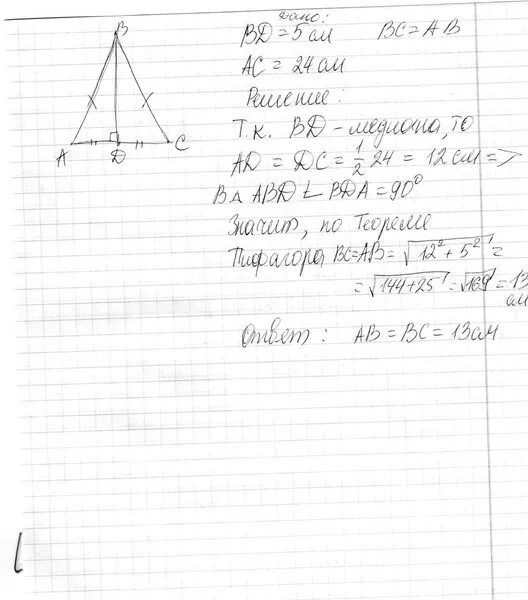 Дано:
BD = 5 см BC = AB
AC = 24 см
Решение:
Т.к. BD - медиана, то
AD = DC = 1/2 24 = 12 см =>
В △ ABD ∠ BDA = 90°
Значит, по Теореме
Пифагора BC=AB= √12² + 5² =
= √144+25 = √169 = 13 см
Ответ: AB = BC = 13 см
B
A
D
C